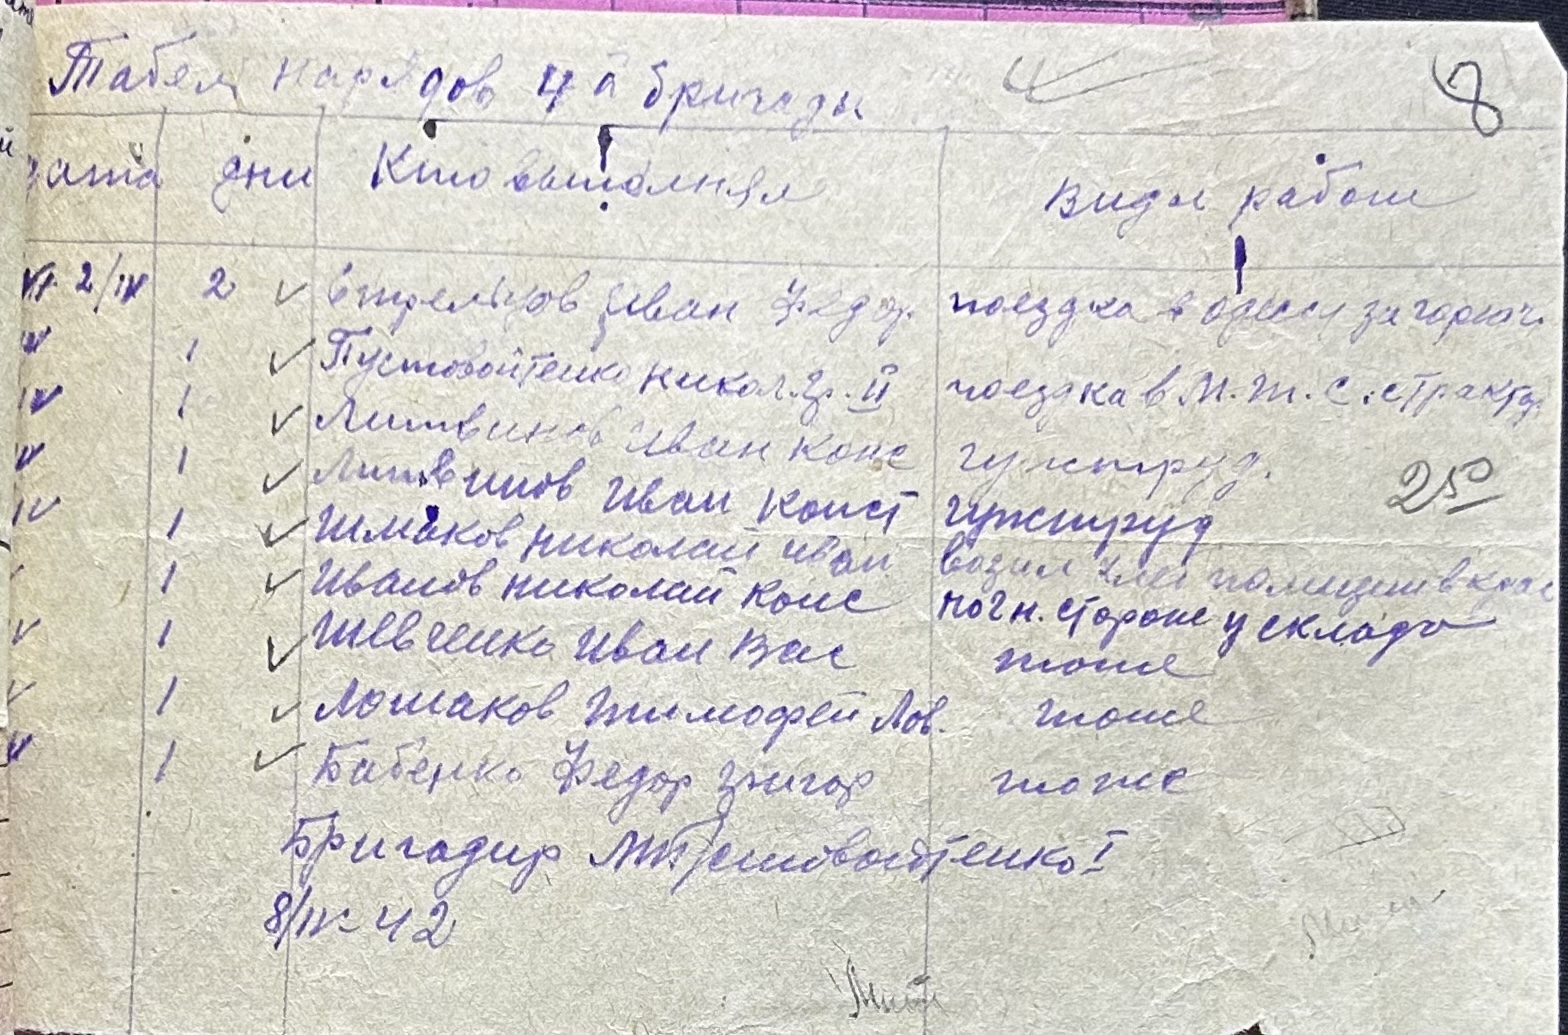 Табел нарядов 4й бригады
8
дата дни Кто выполнял Виды работ
2/IV 2 Стрельцов Иван Федор. поездка в одессу за горюч.
IV 1 Пустовойтенко Никол. Гр. II поездка в М.Т.С. с трактор
IV 1 Литвинов Иван Конс гужтруд.
IV 1 Литвинов Иван Конст гужтруд
250
IV 1 Шмаков Николай Иван возил хлеб
1 Иванов Николай Конс ночн. сторож у склада
V 1 Шевченко Иван Вас тоже
V 1 Лошаков Тимофей Лов. тоже
V 1 Бабенко Федор Григор тоже
Бригадир Пустовойтенко I
8/IV-42